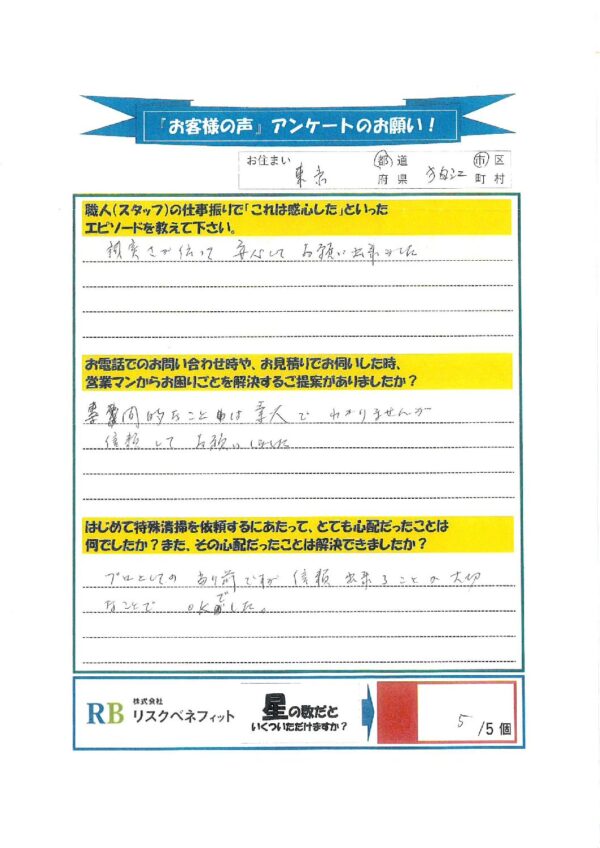 『お客様の声』アンケートのお願い！
お住まい 東京 都道府県 狛江 市区町村
職人(スタッフ)の仕事振りで「これは感心した」といった
エピソードを教えて下さい。
誠実さが伝って 安心して お願い出来ました
お電話でのお問い合わせ時や、お見積りでお伺いした時、
営業マンからお困りごとを解決するご提案がありましたか？
門的なことは素人で わかりませんが
信頼して お願いしました
はじめて特殊清掃を依頼するにあたって、とても心配だったことは
何でしたか？また、その心配だったことは解決できましたか？
プロとしての 当り前ですが 信頼 出来ることが 大切
なことで OKでした。
RB 株式会社
リスクベネフィット
星の数だと
いくついただけますか？
5 /5個